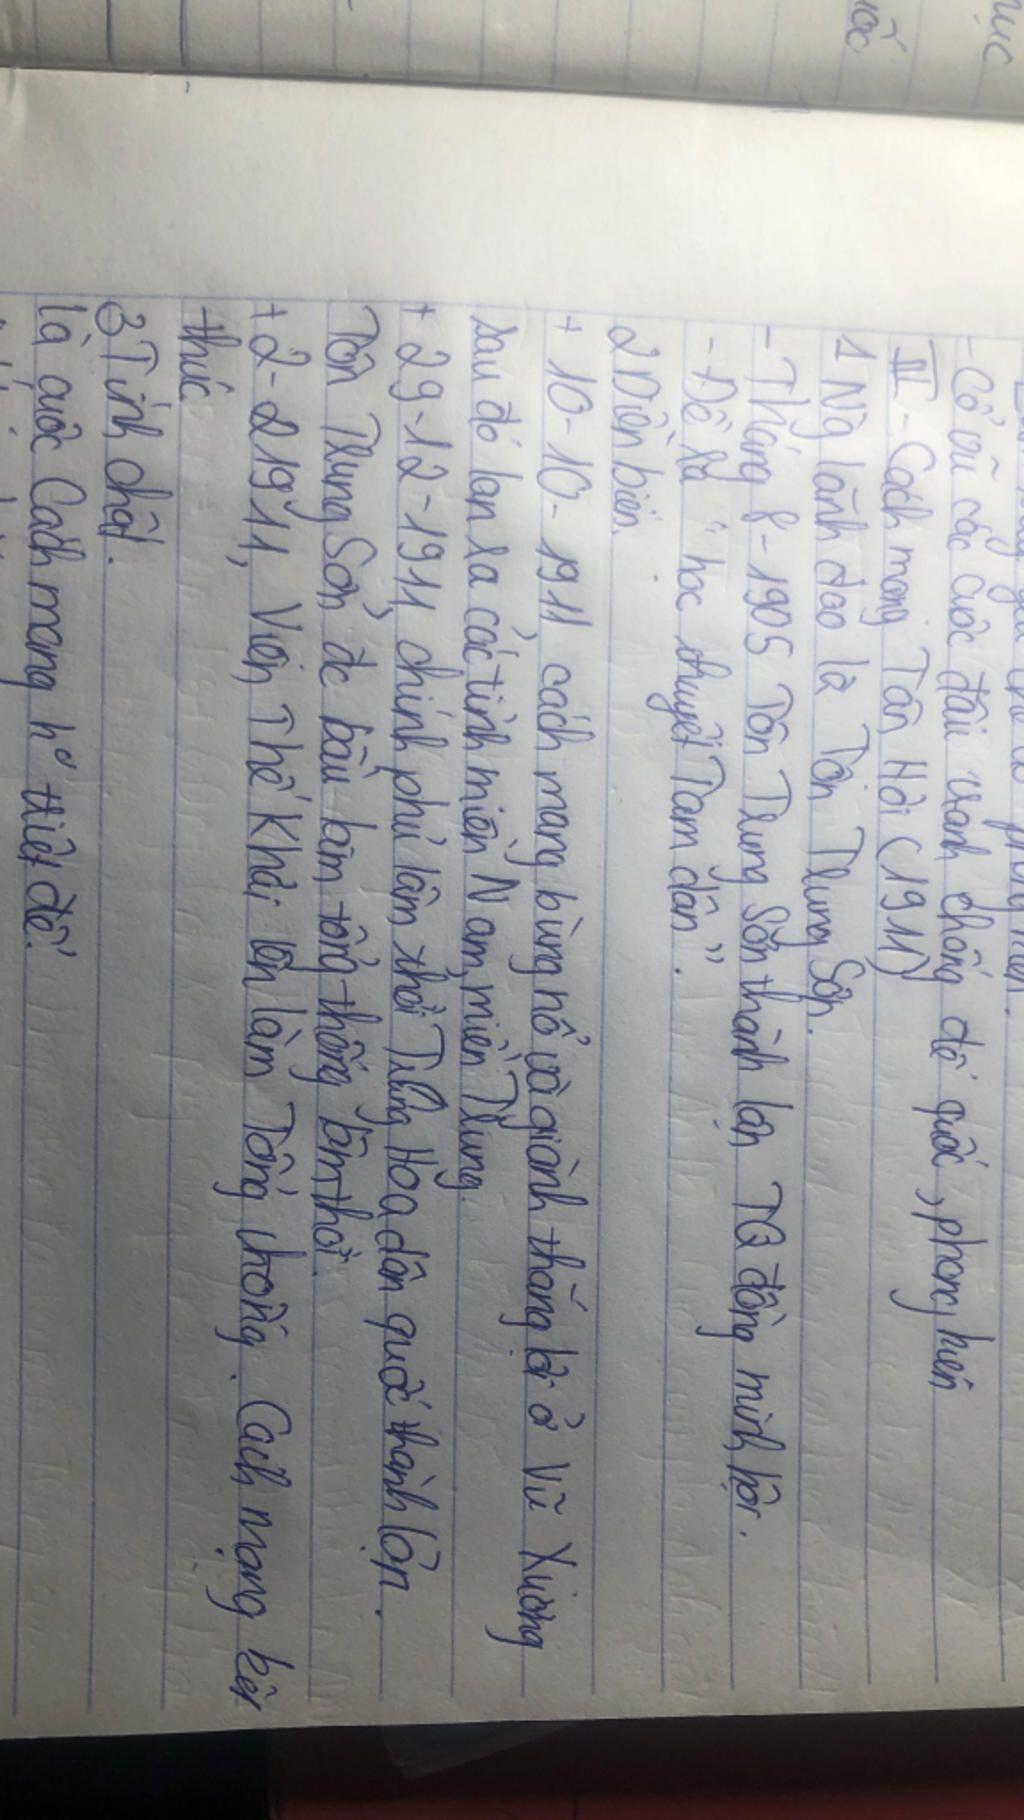 - Cổ vũ các cuộc đấu tranh chống đế quốc, phong kiến
III - Cách mạng Tân Hợi (1911)
1 Ng lãnh đạo là Tôn Trung Sơn.
- Tháng 8-1905 Tôn Trung Sơn thành lập TQ đồng minh hội.
- Đề ra "học thuyết Tam dân".
2 Diễn biến.
+ 10-10-1911, cách mạng bùng nổ và giành thắng lợi ở Vũ Xương
sau đó lan ra các tỉnh miền Nam, miền Trung.
+ 29-12-1911, chính phủ lâm thời Trung Hoa dân quốc thành lập.
Tôn Trung Sơn đc bầu làm tổng thống lâm thời.
+ 2-21911, Viên Thế Khải lên làm Tổng thống. Cách mạng kết
thúc
3 Tính chất.
là cuộc Cách mạng ko triệt để.